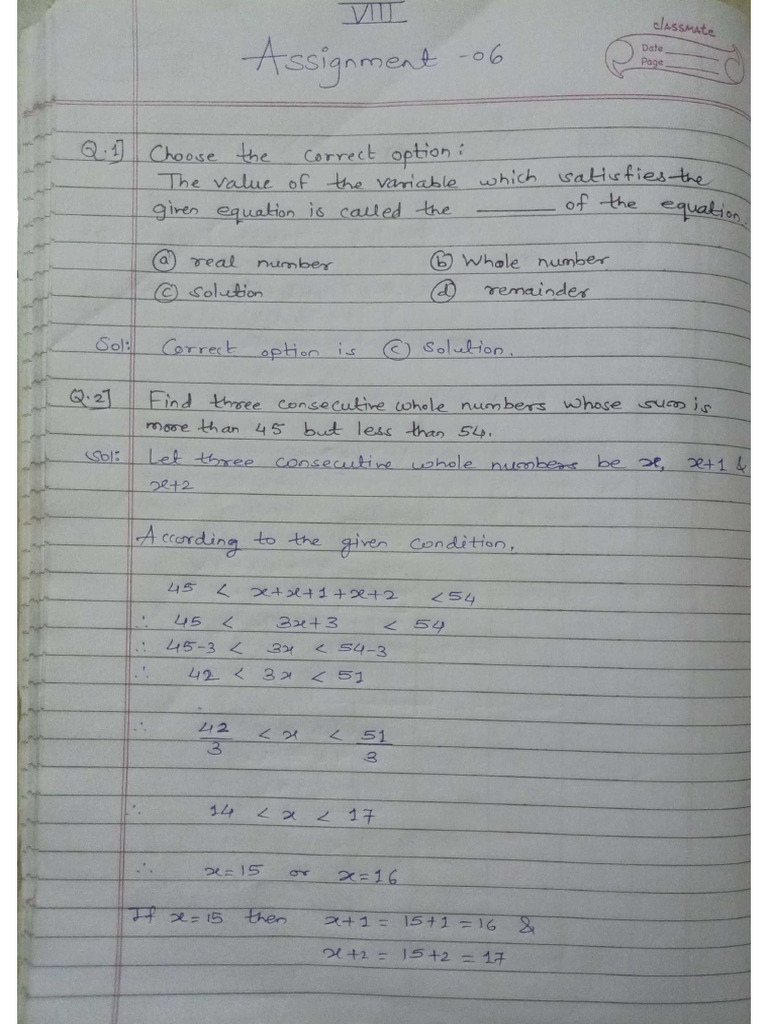 VIII
Assignment -06
classmate
Date
Page
Q.1] Choose the correct option:
The value of the variable which satisfies the
given equation is called the ______ of the equation.
(a) real number (b) Whole number
(c) solution (d) remainder
Sol: Correct option is (c) solution.
Q.2] Find three consecutive whole numbers whose sum is
more than 45 but less than 54.
Sol: Let three consecutive whole numbers be x, x+1 &
x+2
According to the given condition,
45 < x+x+1+x+2 < 54
∴ 45 < 3x+3 < 54
∴ 45-3 < 3x < 54-3
∴ 42 < 3x < 51
∴ 42/3 < x < 51/3
∴ 14 < x < 17
∴ x=15 or x=16
If x=15 then x+1 = 15+1 = 16 &
x+2 = 15+2 = 17